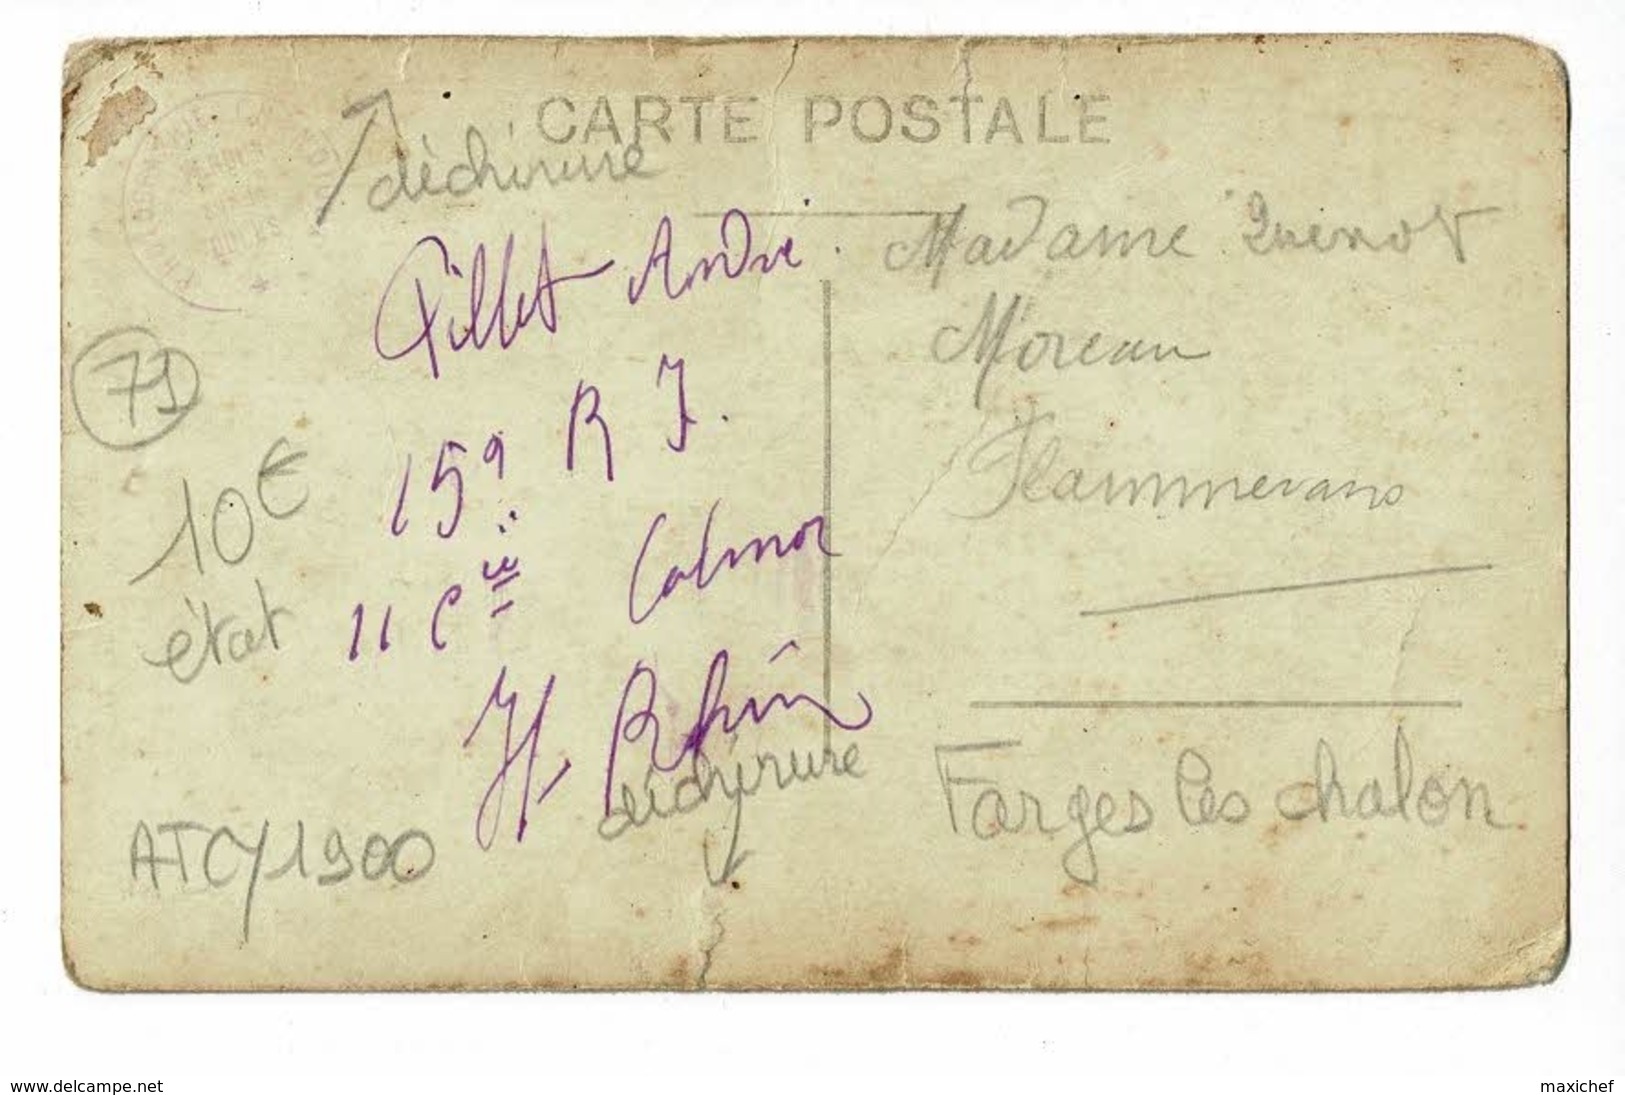 CARTE POSTALE
déchirure
Pillet André.
15e R I.
11 Cie Colmar
H. Rhin
71
10€
état
déchirure
ATCY/1900
Madame Quenot
Moreau
Flammerans
Farges les chalon
www.delcampe.net
maxichef